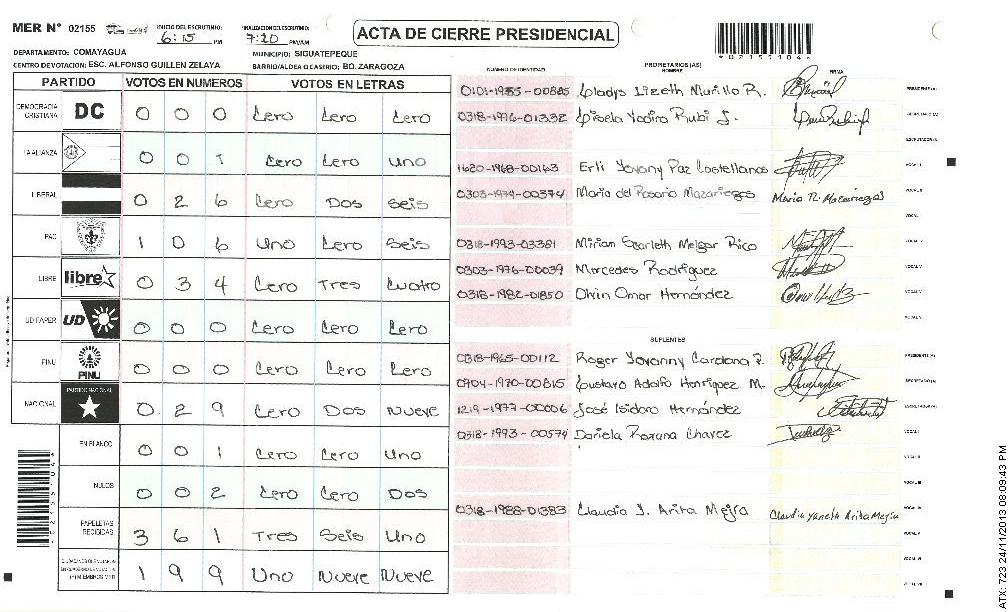 MER N° 02155
INICIO DEL ESCRUTINIO 6:15 PM
FINALIZACION DEL ESCRUTINIO 7:20 PM/AM
ACTA DE CIERRE PRESIDENCIAL
*02155104*
DEPARTAMENTO: COMAYAGUA
MUNICIPIO: SIGUATEPEQUE
CENTRO DE VOTACION: ESC. ALFONSO GUILLEN ZELAYA
BARRIO/ALDEA O CASERIO: BO. ZARAGOZA
PARTIDO VOTOS EN NUMEROS VOTOS EN LETRAS
DEMOCRACIA CRISTIANA DC 0 0 0 Cero Cero Cero
LA ALIANZA 0 0 1 Cero Cero Uno
LIBERAL 0 2 6 Cero Dos Seis
PAC 1 0 6 Uno Cero Seis
LIBRE libre 0 3 4 Cero Tres Cuatro
UD FAPER UD 0 0 0 Cero Cero Cero
PINU PINU 0 0 0 Cero Cero Cero
NACIONAL PARTIDO NACIONAL 0 2 9 Cero Dos Nueve
EN BLANCO 0 0 1 Cero Cero Uno
NULOS 0 0 2 Cero Cero Dos
PAPELETAS RECIBIDAS 3 6 1 Tres Seis Uno
1 9 9 Uno Nueve Nueve
NUMERO DE IDENTIDAD
PROPIETARIOS (AS)
NOMBRE
FIRMA
0101-1955-00885 Gladys Lizeth Murillo R. PRESIDENTE (A)
0318-1976-01332 Gisela Yadira Rubi J. SECRETARIO (A)
ESCRUTADOR (A)
1620-1968-00163 Erli Yovany Paz Castellanos VOCAL I
0303-1974-00374 Maria del Rosario Mazariegos Maria R. Mazariegos VOCAL II
0318-1993-03361 Mirian Scarleth Melgar Rico
0303-1976-00039 Mercedes Rodriguez
0318-1982-01850 Olvin Omar Hernández
SUPLENTES
0318-1965-00112 Roger Yovanny Cardona P. PRESIDENTE (A)
0904-1970-00615 Gustavo Adolfo Henriquez M. SECRETARIO (A)
1219-1977-00006 José Isidoro Hernández ESCRUTADOR (A)
0318-1993-00574 Daniela Roxana Chavez VOCAL I
VOCAL II
VOCAL III
0318-1988-01383 Claudia Y. Arita Mejía Claudia Yaneth Arita Mejia
VOCAL V
VOCAL VI
VOCAL VII
ATX: 723 24/11/2013 08:09:43 PM